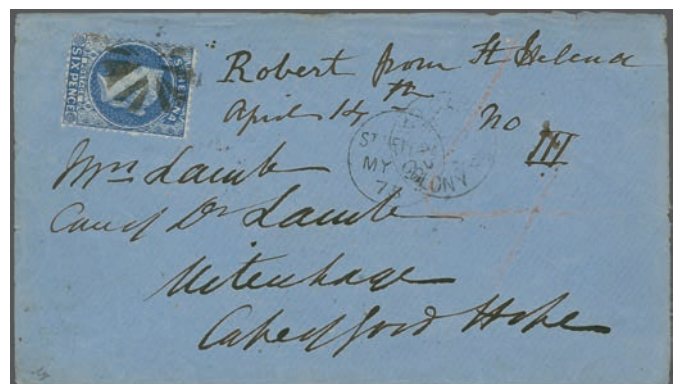 SIX PENCE
ST HELENA
Robert from St Helena
April 14th
no III
ST HELENA
MY
73
COLONY
Mrs Lamb
Care of Dr Lamb
Uitenhage
Cape of Good Hope